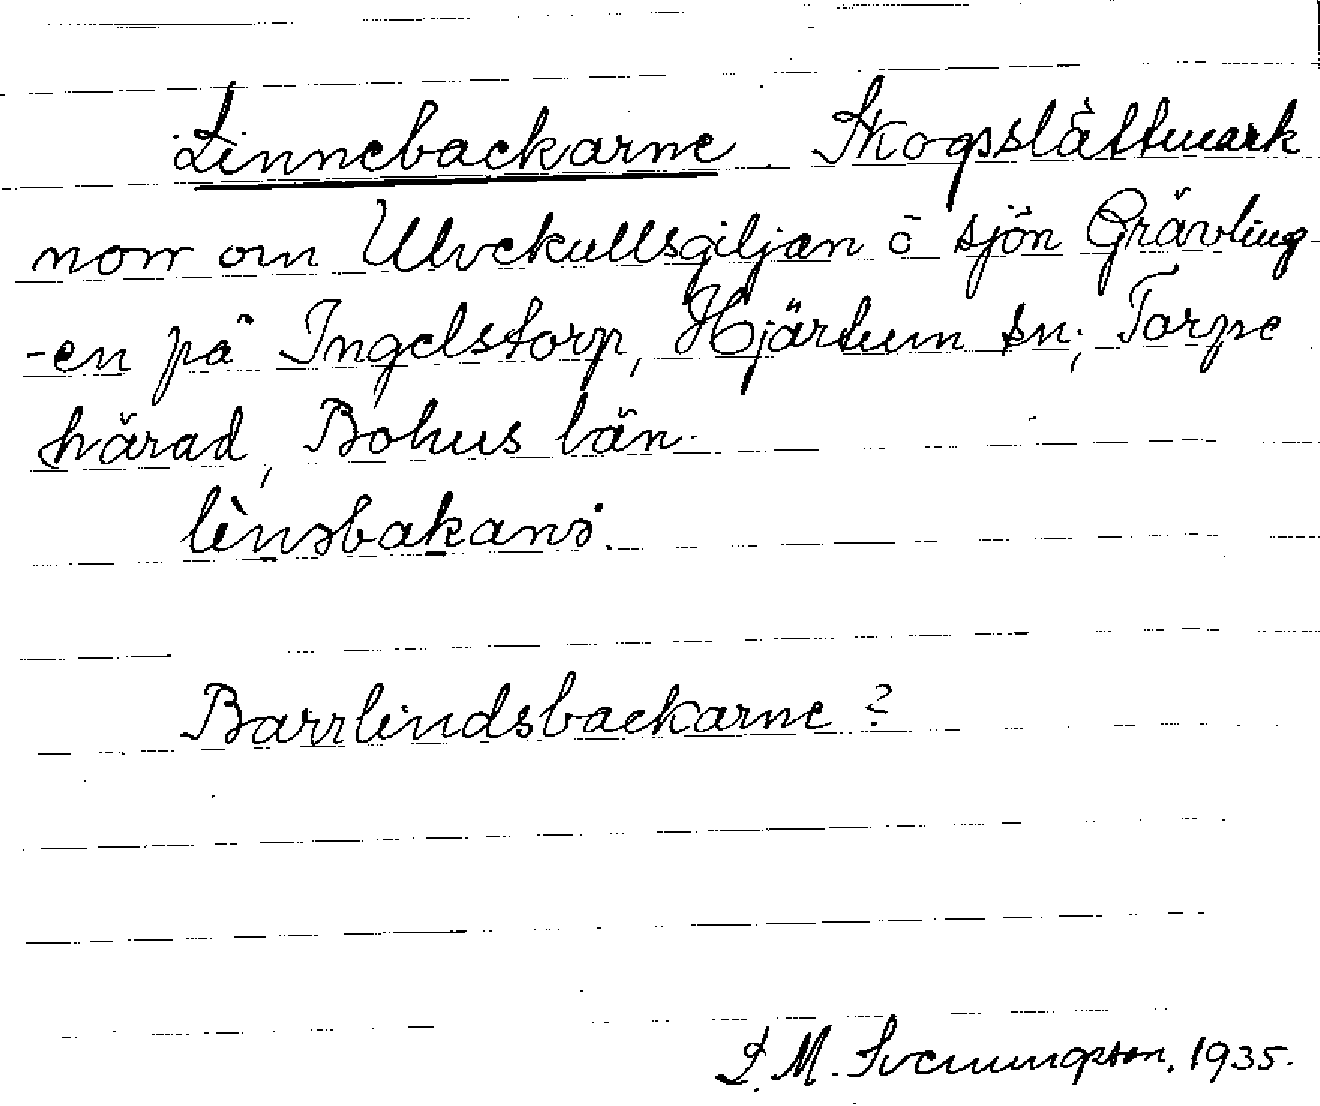 Linnebackarne. Skogsslåttmark
norr om Ulvekullsgiljan o sjön Grävling
-en på Ingelstorp, Hjärtum sn; Torpe
härad, Bohus län.
lìnəbakanə.
Barrlindsbackarne?
L. M. Svenungsson, 1935.